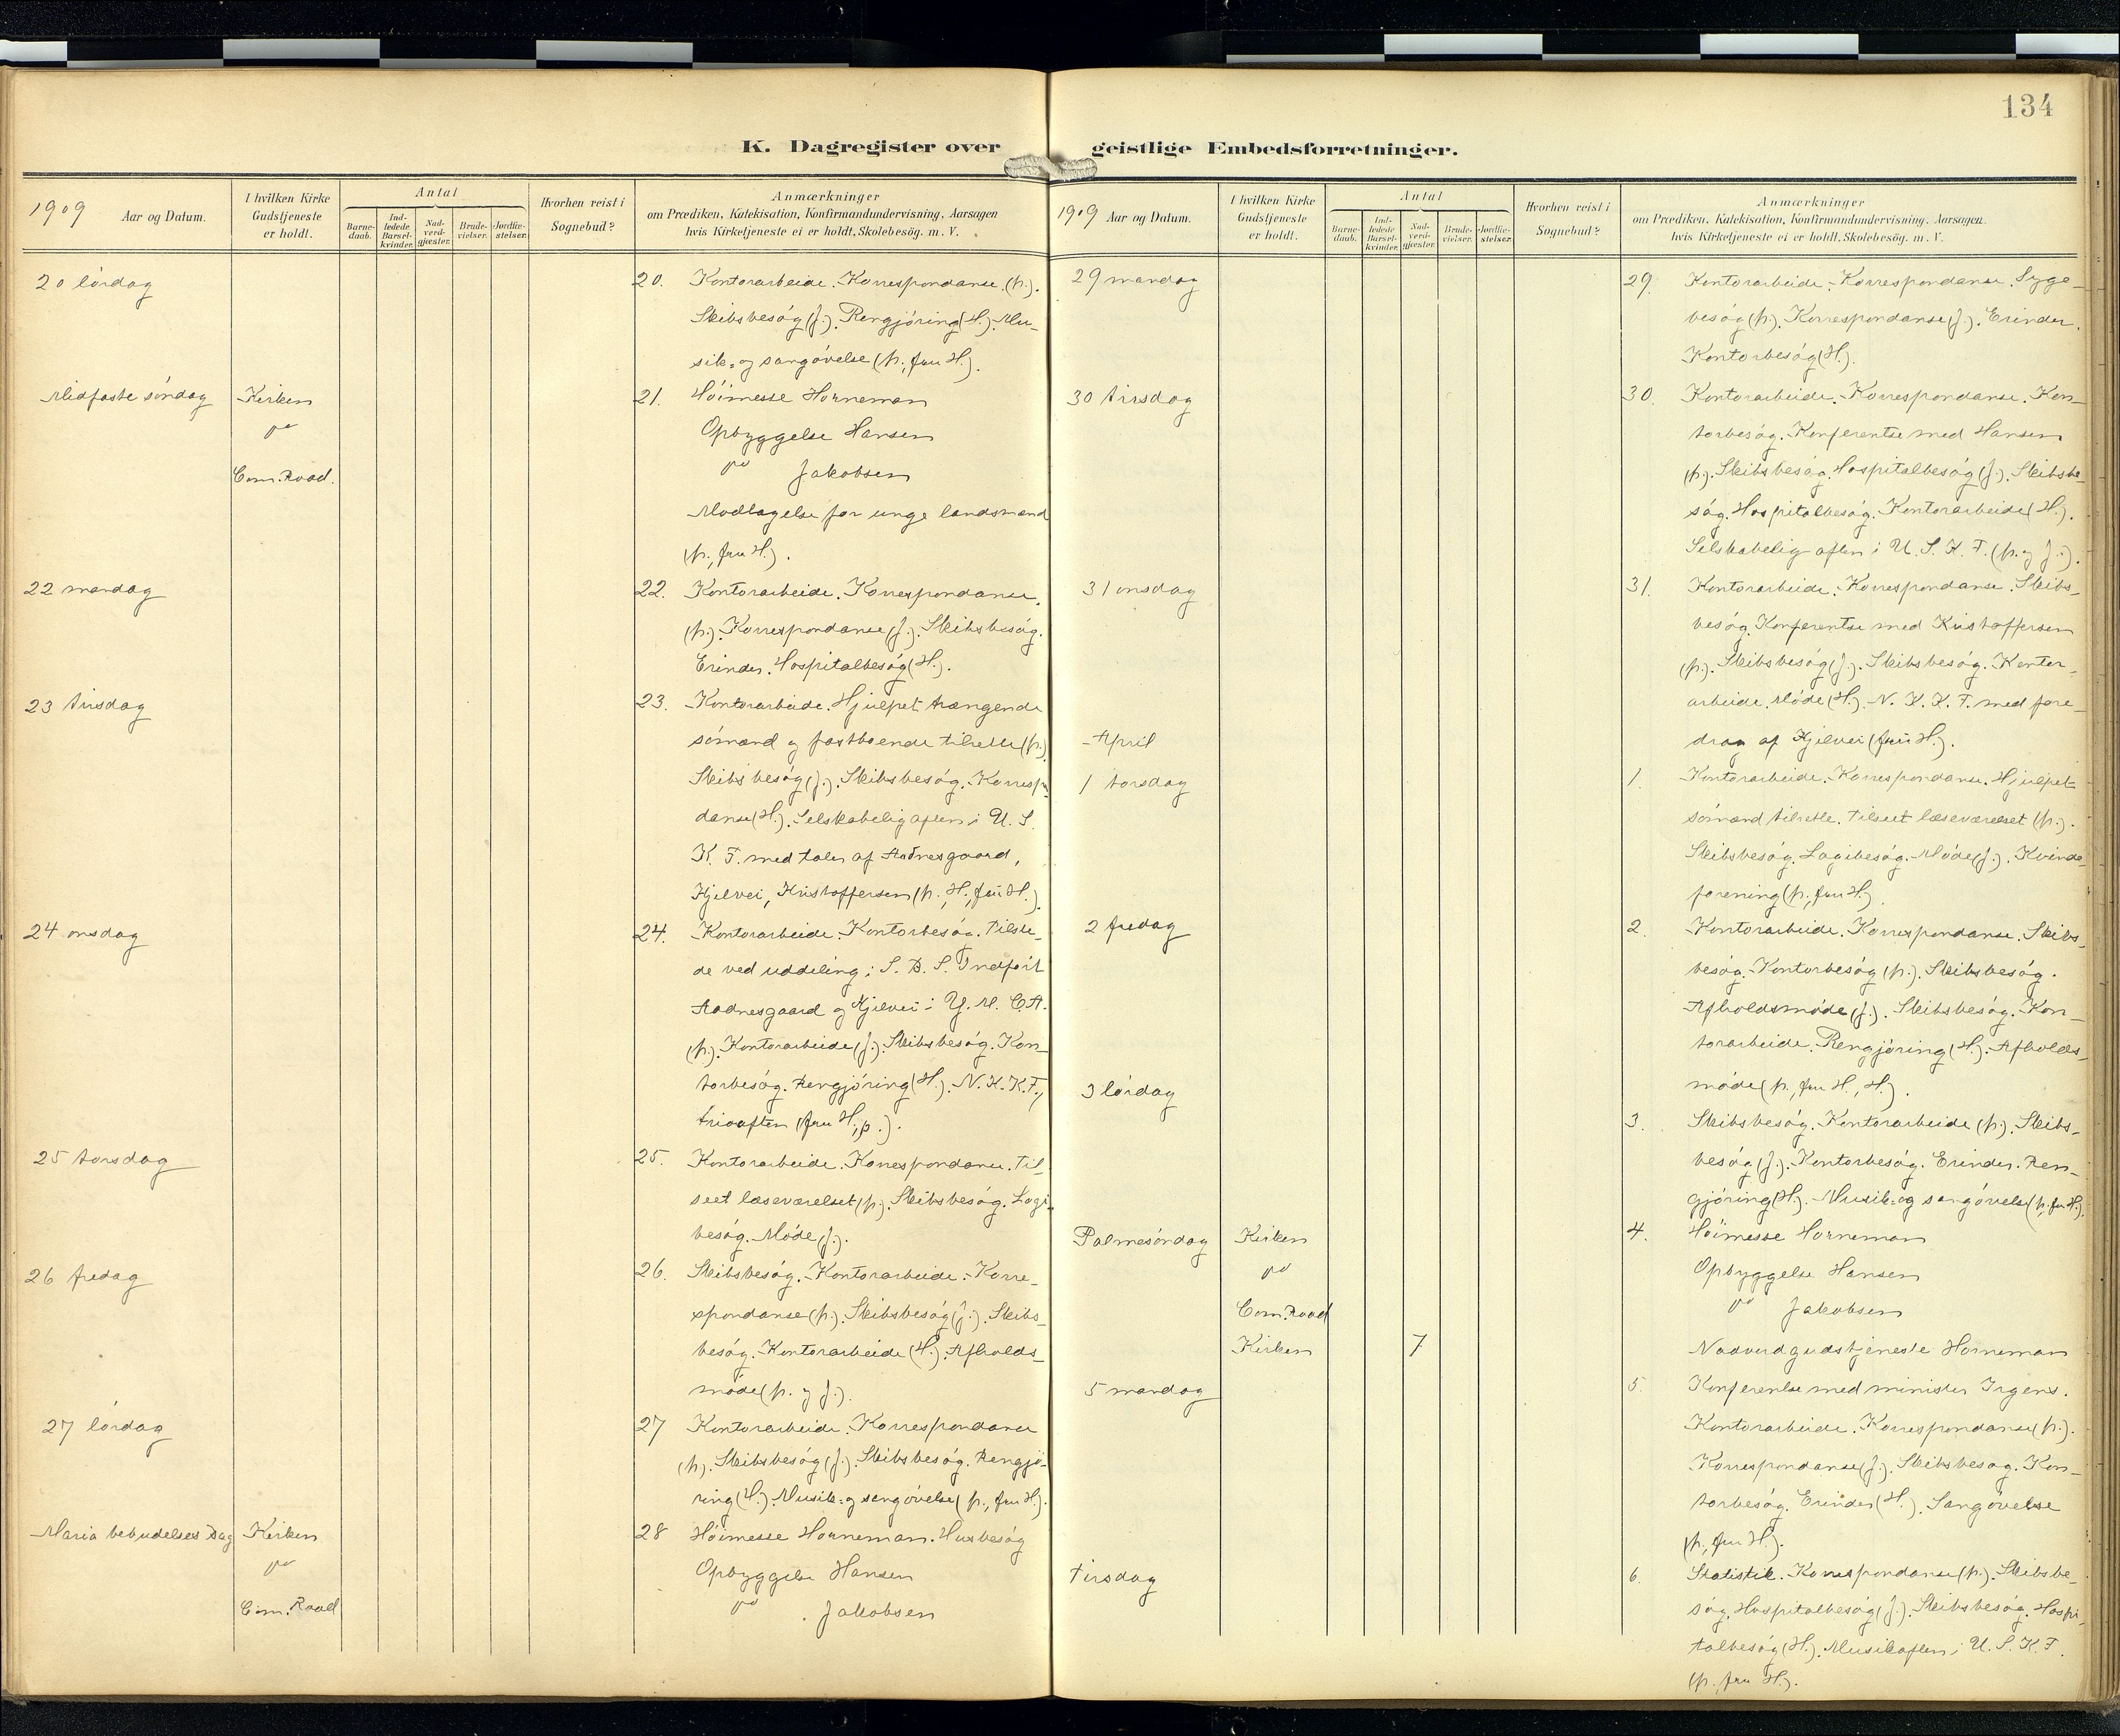 134
K. Dagregister over geistlige Embedsforretninger.
1909 Aar og Datum.
I hvilken Kirke Gudstjeneste er holdt.
Antal
Barnedaab.
Indledede Barselkvinder.
Nadverdgjæster.
Brudevielser.
Jordfæstelser.
Hvorhen reist i Sognebud?
Anmærkninger
om Prædiken, Katekisation, Konfirmandundervisning, Aarsagen
hvis Kirketjeneste ei er holdt, Skolebesög. m. V.
20 lördag
20. Kontorarbeide. Korrespondanse. (p.).
Skibsbesög (J.). Rengjöring (H.). Mu-
sik- og sangövelse (p., fru H.).
Midfaste söndag Kirken 21. Höimesse Horneman
do Opbyggelse Hansen
Com. Road. do Jakobsen
Modtagelse for unge landsmænd
(p., fru H.).
22 mandag 22. Kontorarbeide. Korrespondanse.
(p.). Korrespondanse (J.). Skibsbesög.
Erinder. Hospitalbesög (H.).
23 tirsdag 23. Kontorarbeide. Hjulpet trængende
sömænd og fastboende tilrette (p.)
Skibsbesög (J.). Skibsbesög. Korrespon
danse (H.). Selskabelig aften i U. S.
K. F. med taler af Aadnesgaard,
Hjelvei, Kristoffersen (p., H., fru H.).
24 onsdag 24. Kontorarbeide. Kontorbesög. Tilste-
de ved uddeling i S. B. S. Indfört
Aadnesgaard og Hjelvei i Y. M. C. A.
(p.). Kontorarbeide (J.). Skibsbesög. Kon-
torbesög. Rengjöring (H.). N. K. K. F.,
trioaften (fru H., p.).
25 torsdag 25. Kontorarbeide. Korrespondanse. Til-
seet læseværelset (p.). Skibsbesög. Logi-
besög. Möde (J.).
26 fredag 26. Skibsbesög. Kontorarbeide. Korre-
spondanse (p.). Skibsbesög (J.). Skibs-
besög. Kontorarbeide (H.). Afholds-
möde (p. og J.).
27 lördag 27 Kontorarbeide. Korrespondanse
(p.). Skibsbesög (J.). Skibsbesög. Rengjö-
ring (H.). Musik- og sangövelse (p., fru H.).
Maria bebudelses Dag Kirken 28 Höimesse Horneman. Husbesög
do Opbyggelse Hansen
Com. Road do Jakobsen
1909 Aar og Datum.
I hvilken Kirke Gudstjeneste er holdt.
Antal
Barnedaab.
Indledede Barselkvinder.
Nadverdgjæster.
Brudevielser.
Jordfæstelser.
Hvorhen reist i Sognebud?
Anmærkninger
om Prædiken, Katekisation, Konfirmandundervisning, Aarsagen
hvis Kirketjeneste ei er holdt, Skolebesög. m. V.
29 mandag 29. Kontorarbeide. Korrespondanse. Syge-
besög (p.). Korrespondanse (J.). Erinder.
Kontorbesög (H.).
30 tirsdag 30. Kontorarbeide. Korrespondanse. Kon-
torbesög. Konferentse med Hansen
(p.). Skibsbesög. Hospitalbesög (J.). Skibsbe-
sög. Hospitalbesög. Kontorarbeide (H.).
Selskabelig aften i U. S. K. F. (p. og J.).
31 onsdag 31. Kontorarbeide. Korrespondanse. Skibs-
besög. Konferentse med Kristoffersen
(p.). Skibsbesög (J.). Skibsbesög. Kontor-
arbeide. Möde (H.). N. K. K. F. med fore-
drag af Hjelvei (fru H.).
April
1 torsdag 1. Kontorarbeide. Korrespondanse. Hjulpet
sömænd tilrette. Tilseet læseværelset (p.).
Skibsbesög. Logibesög. Möde (J.). Kvinde-
forening (p., fru H.).
2 fredag 2. Kontorarbeide. Korrespondanse. Skibs-
besög. Kontorbesög (p.). Skibsbesög.
Afholdsmöde (J.). Skibsbesög. Kon-
torarbeide. Rengjöring (H.). Afholds-
möde (p., fru H., H.).
3 lördag 3. Skibsbesög. Kontorarbeide (p.). Skibs-
besög (J.). Kontorbesög. Erinder. Ren-
gjöring (H.). Musik- og sangövelse (p. fru H.).
Palmesöndag Kirken 4. Höimesse Horneman
do Opbyggelse Hansen
Com. Road do Jakobsen
Kirken 7 Nadverdgudstjeneste Horneman
5 mandag 5. Konferentse med minister Irgens.
Kontorarbeide. Korrespondanse (p.).
Korrespondanse (J.). Skibsbesög. Kon-
torbesög. Erinder (H.). Sangövelse
(p., fru H.).
tirsdag 6. Statistik. Korrespondanse (p.). Skibsbe-
sög. Hospitalbesög (J.). Skibsbesög. Hospi-
talbesög (H.). Musikaften i U. S. K. F.
(p. fru H.).